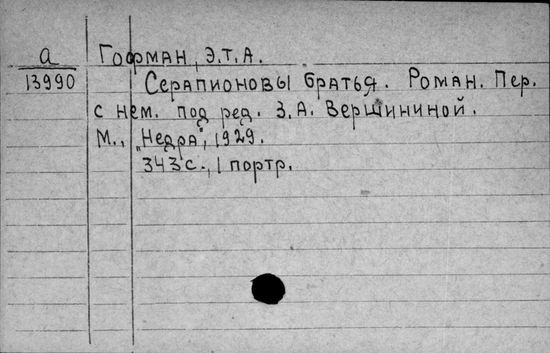 а
13990
Гофман, Э.Т.А.
Серапионовы братья. Роман. Пер.
с нем. под ред. З.А. Вершининой.
М., „Недра", 1929.
343 с., 1 портр.